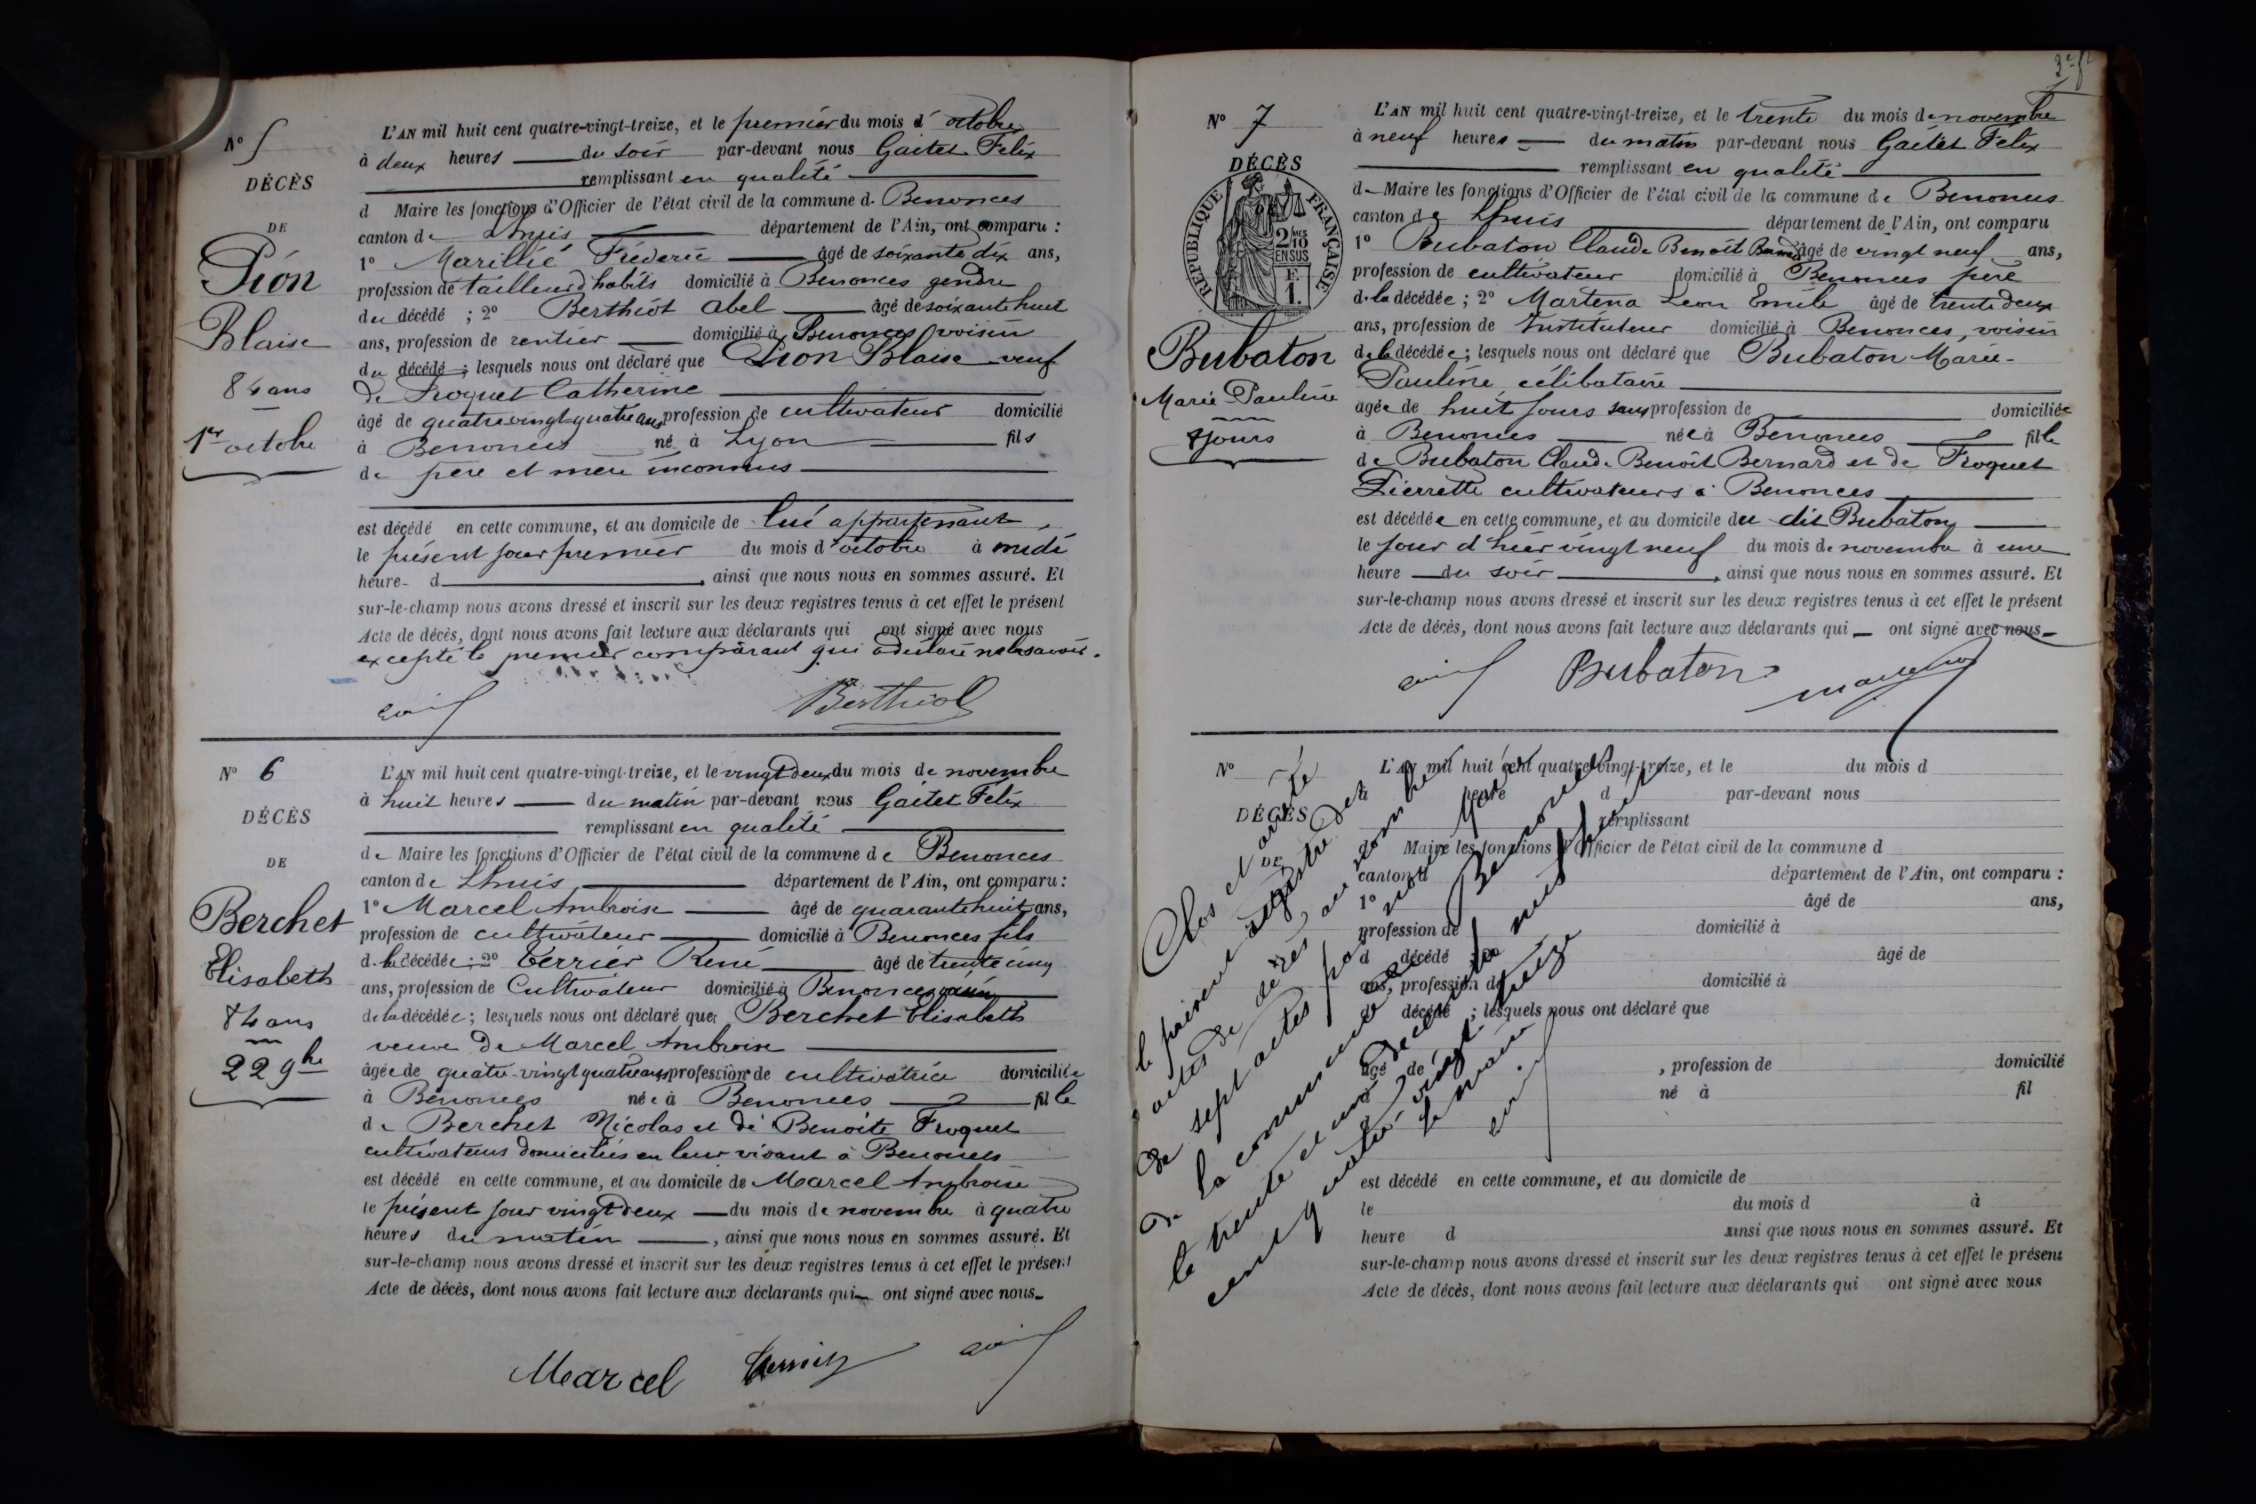 N° 5
DÉCÈS
DE
Pion
Blaise
84 ans
1er octobre
L'AN mil huit cent quatre-vingt-treize, et le premier du mois d'octobre
à deux heures du soir par-devant nous Gaitet Félix
remplissant en qualité
d Maire les fonctions d'Officier de l'état civil de la commune de Benonces
canton de Lhuis département de l'Ain, ont comparu :
1° Marillié Fréderic âgé de soixante dix ans,
profession de tailleur d'habits domicilié à Benonces gendre
du décédé ; 2° Berthiot Abel âgé de soixante huit
ans, profession de rentier domicilié à Benonces voisin
du décédé ; lesquels nous ont déclaré que Pion Blaise veuf
de Froquet Catherine
âgé de quatre vingt quatre ans profession de cultivateur domicilié
à Benonces né à Lyon fils
de père et mère inconnus
est décédé en cette commune, et au domicile de lui appartenant,
le présent jour premier du mois d'octobre à midi
heure d , ainsi que nous nous en sommes assuré. Et
sur-le-champ nous avons dressé et inscrit sur les deux registres tenus à cet effet le présent
Acte de décès, dont nous avons fait lecture aux déclarants qui ont signé avec nous
excepté le premier comparant qui a déclaré ne le savoir.
Berthiot
N° 6
DÉCÈS
DE
Berchet
Elisabeth
84 ans
22 9bre
L'AN mil huit cent quatre-vingt-treize, et le vingt deux du mois de novembre
à huit heures du matin par-devant nous Gaitet Félix
remplissant en qualité
de Maire les fonctions d'Officier de l'état civil de la commune de Benonces
canton de Lhuis département de l'Ain, ont comparu :
1° Marcel Ambroise âgé de quarante huit ans,
profession de cultivateur domicilié à Benonces fils
de la décédée ; 2° Terrier René âgé de trente cinq
ans, profession de Cultivateur domicilié à Benonces voisin
de la décédée ; lesquels nous ont déclaré que Berchet Elisabeth
veuve de Marcel Ambroise
âgée de quatre-vingt quatre ans profession de cultivatrice domiciliée
à Benonces née à Benonces fille
de Berchet Nicolas et de Benoite Froquet
cultivateurs domiciliés en leur vivant à Benonces
est décédé en cette commune, et au domicile de Marcel Ambroise
le présent jour vingt deux du mois de novembre à quatre
heures du matin , ainsi que nous nous en sommes assuré. Et
sur-le-champ nous avons dressé et inscrit sur les deux registres tenus à cet effet le présent
Acte de décès, dont nous avons fait lecture aux déclarants qui ont signé avec nous
Marcel
N° 7
DÉCÈS
RÉPUBLIQUE FRANÇAISE
2/10 MES
EN SUS
F.
1.
Bubaton
Marie Pauline
8 jours
L'AN mil huit cent quatre-vingt-treize, et le trente du mois de novembre
à neuf heures du matin par-devant nous Gaitet Félix
remplissant en qualité
de Maire les fonctions d'Officier de l'état civil de la commune de Benonces
canton de Lhuis département de l'Ain, ont comparu
1° Bubaton Claude Benoît Bernard âgé de vingt neuf ans,
profession de cultivateur domicilié à Benonces père
de la décédée ; 2° Martena Léon Emile âgé de trente deux
ans, profession de Instituteur domicilié à Benonces, voisin
de la décédée ; lesquels nous ont déclaré que Bubaton Marie-
Pauline, célibataire
âgée de huit jours sans profession de domiciliée
à Benonces née à Benonces fille
de Bubaton Claude Benoît Bernard et de Froquet
Pierrette cultivateurs à Benonces
est décédée en cette commune, et au domicile du dit Bubaton
le jour d'hier vingt neuf du mois de novembre à une
heure du soir , ainsi que nous nous en sommes assuré. Et
sur-le-champ nous avons dressé et inscrit sur les deux registres tenus à cet effet le présent
Acte de décès, dont nous avons fait lecture aux déclarants qui ont signé avec nous
Bubaton
N°
DÉCÈS
DE
L'AN mil huit cent quatre-vingt-treize, et le du mois d
à heure d par-devant nous
remplissant
Maire les fonctions d'Officier de l'état civil de la commune d
canton d département de l'Ain, ont comparu :
1° âgé de ans,
profession de domicilié à
d décédé âgé de
ans, profession de domicilié à
d décédé ; lesquels nous ont déclaré que
âgé de , profession de domicilié
né à fil
est décédé en cette commune, et au domicile de
le du mois d à
heure d ainsi que nous nous en sommes assuré. Et
sur-le-champ nous avons dressé et inscrit sur les deux registres tenus à cet effet le présent
Acte de décès, dont nous avons fait lecture aux déclarants qui ont signé avec nous
Clos et arrêté
le présent registre des
actes de décès, au nombre
de sept actes par nous Maire
de la commune de Benonces
le trente et un décembre mil huit
cent quatre vingt treize
Le maire